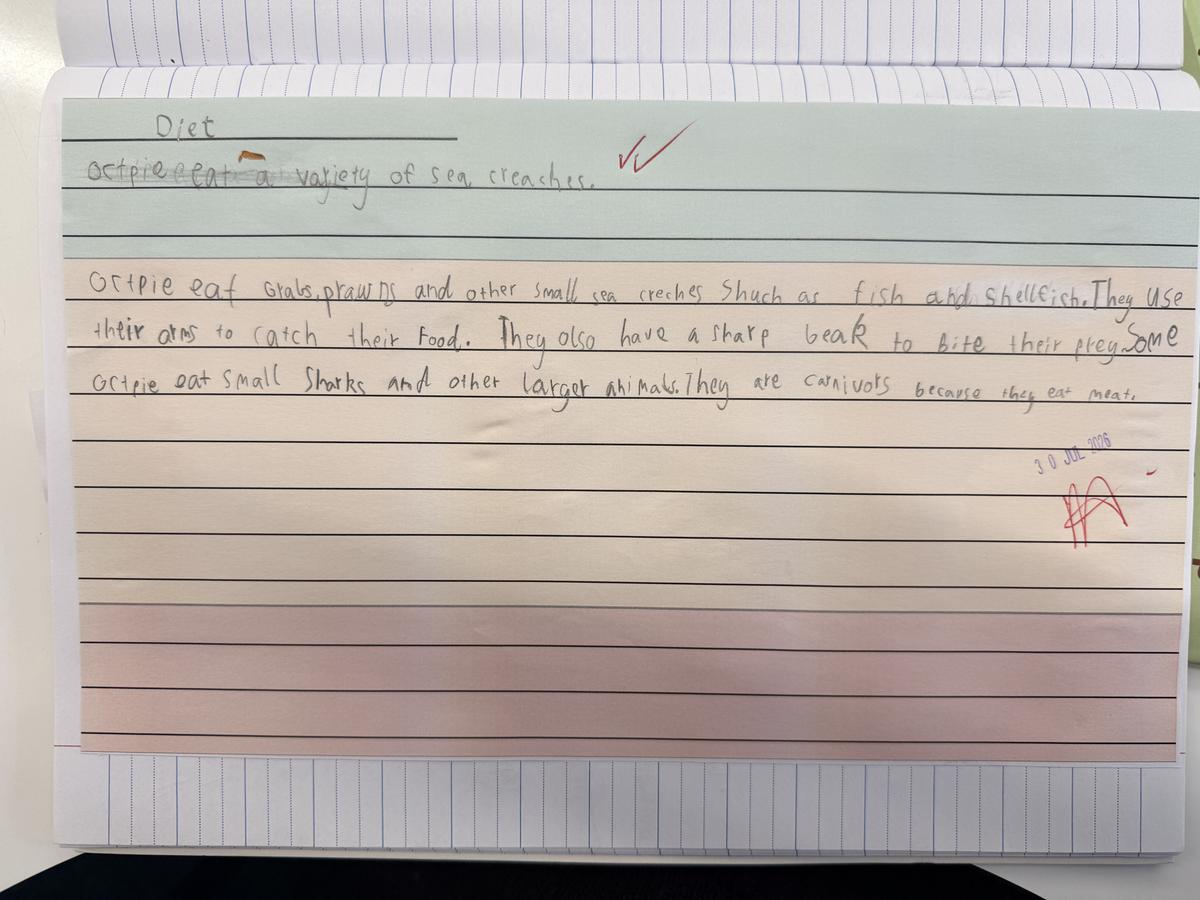 Diet
Octpie eat a variety of sea creaches.
Octpie eat Crabs, prawns and other small sea creches Shuch as fish and shellfish. They use
their arms to catch their Food. They also have a sharp beak to Bite their prey. Some
Octpie eat small Sharks and other larger animals. They are carnivors because they eat meat.
30 JUL 2026